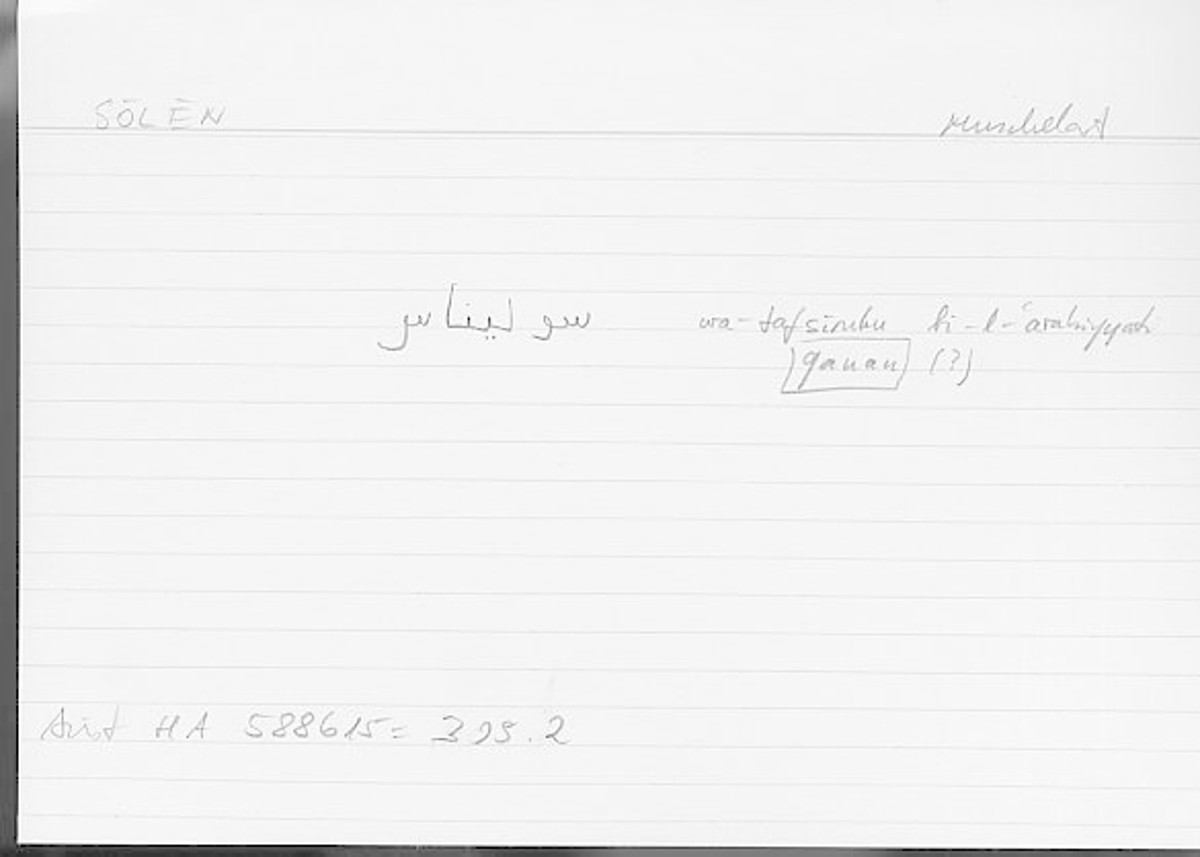 SŌLĒN Muschelart
سوليناس wa-tafsīruhu bi-l-ʿarabiyyah
qanan (?)
Arist HA 588b15 = 395.2